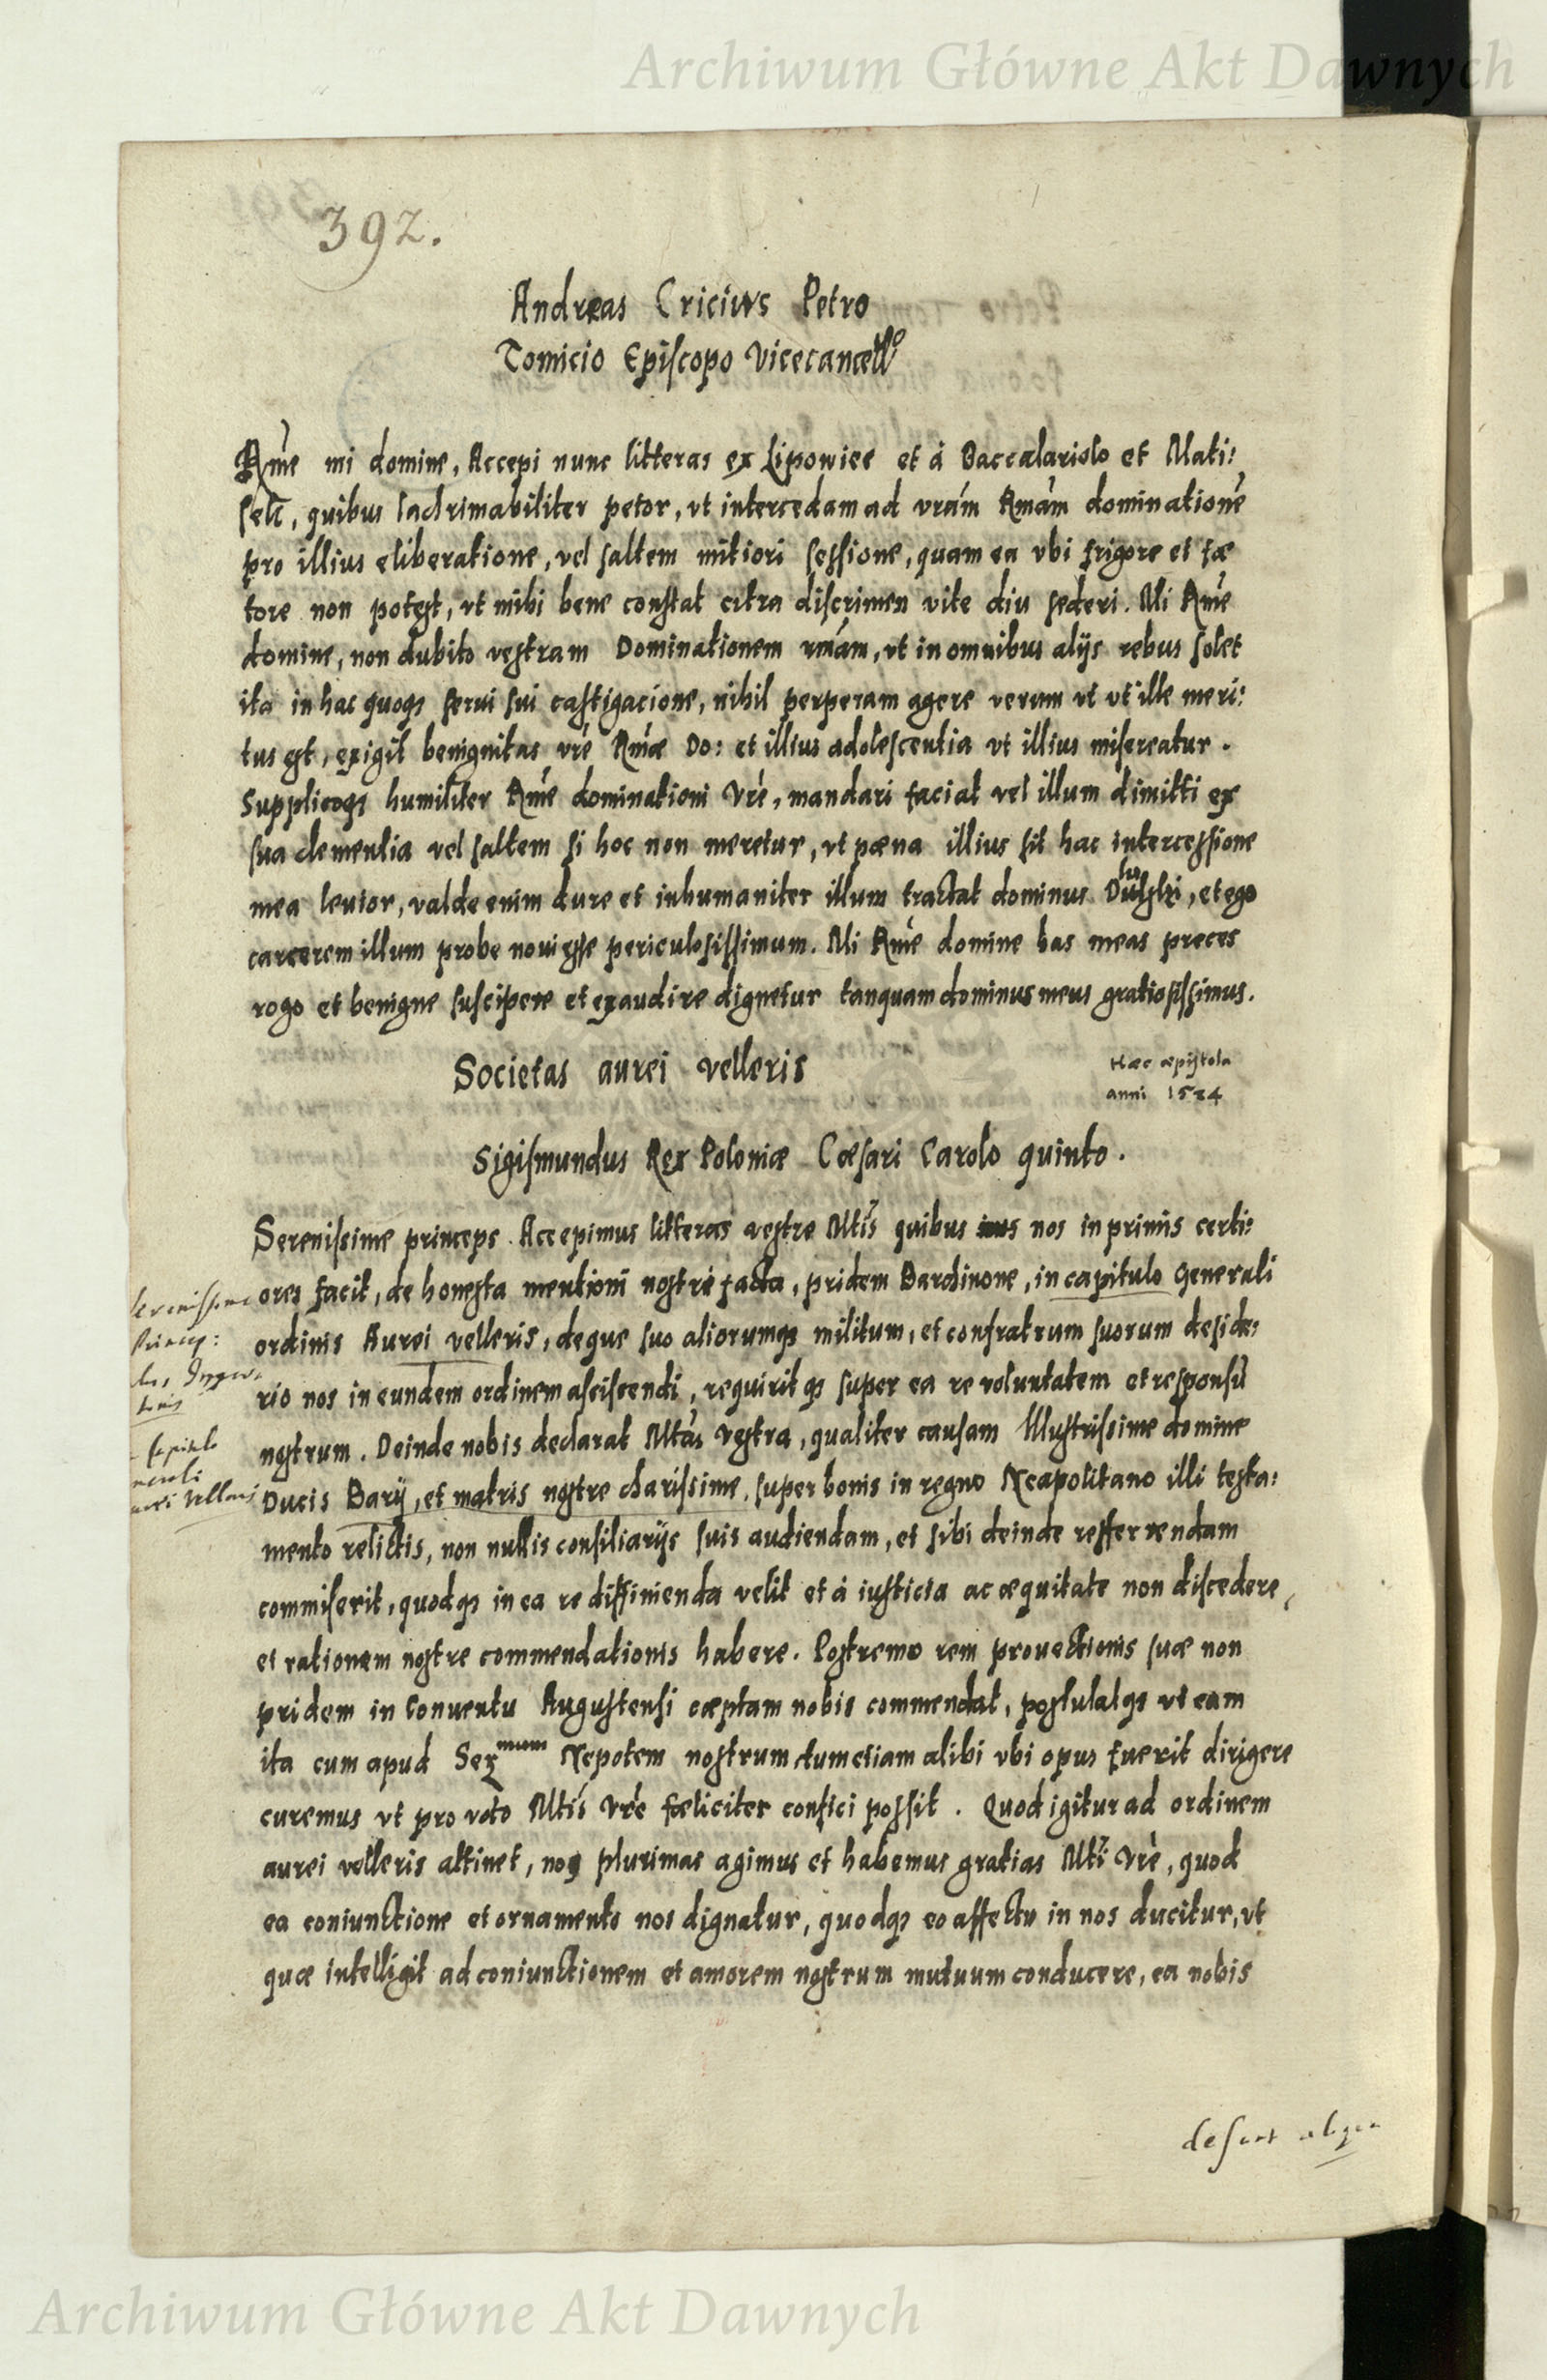 Archiwum Główne Akt Dawnych
392.
Andreas Cricius Petro
Tomicio Episcopo Vicecancell⁰
Rm̃e mi domine, Accepi nunc litteras ex Lipowiec et à Baccalariolo et Mati:
quibus lachrimabiliter petor, vt intercedam ad vram̃ Rmam̃ dominationẽ
pro illius eliberatione, vel saltem mitiori sessione, quam ea vbi frigore et fæ
tore non potest, vt mihi bene constat citra discrimen vite diu sederi. Mi Rm̃e
domine, non dubito vestram Dominationem rmãm, vt in omnibus alijs rebus solet
ita in hac quoq3 serui sui castigacione, nihil perperam agere verum vt vt ille meri:
tus est, exigit benignitas vrẽ Rmæ̃ Do: et illius adolescentia vt illius misereatur.
Supplicoq3 humiliter Rm̃e dominationi Vrẽ, mandari faciat vel illum dimitti ex
sua clementia vel saltem si hoc non meretur, vt pœna illius sit hac intercessione
mea leuior, valde enim dure et inhumaniter illum tractat dominus et ego
carcerem illum probe noui esse periculosissimum. Mi Rm̃e domine has meas preces
rogo et benigne suscipere et exaudire dignetur tanquam dominus meus gratiosissimus.
Societas aurei velleris
Hæc æpistola
anni 1534
Sigismundus Rex Poloniæ Cæsari Carolo quinto.
Serenissime princeps. Accepimus litteras vestre Mtĩs quibus nos in primis certi:
ores facit, de honesta mentioni nostri facta, pridem Barchinone, in capitulo Generali
ordinis Aurei velleris, deque suo aliorumq3 militum, et confratrum suorum deside:
rio nos in eundem ordinem asciscendi, requiritq3 super ea re voluntatem et responsũ
nostrum. Deinde nobis declarat Mtãs Vestra, qualiter causam Illustrissime domine
Ducis Barij, et matris nostre charissime, super bonis in regno Neapolitano illi testa:
mento relictis, non nullis consiliarijs suis audiendam, et sibi deinde refferrendam
commiserit, quodq3 in ea re diffinienda velit et à iusticia ac æquitate non discedere,
et rationem nostre commendationis habere. Postremo rem prouectionis suæ non
pridem in Conuentu Augustensi cæptam nobis commendat, postulatq3 vt eam
ita cum apud Serᵐᵘᵐ Nepotem nostrum, tum etiam alibi vbi opus fuerit dirigere
curemus vt pro voto Mtĩs Vrẽ fæliciter confici possit. Quod igitur ad ordinem
aurei velleris attinet, nos plurimas agimus et habemus gratias Mtĩ Vrẽ, quod
ea coniunctione et ornamento nos dignatur, quodq3 eo affectu in nos ducitur, vt
quæ intelligit ad coniunctionem et amorem nostrum mutuum conducere, ea nobis
desunt
Archiwum Główne Akt Dawnych